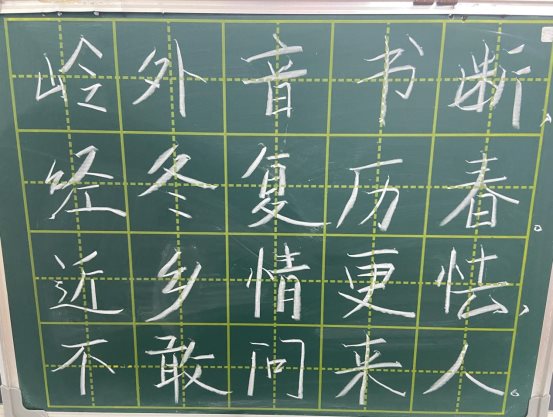 岭外音书断，
经冬复历春。
近乡情更怯，
不敢问来人。